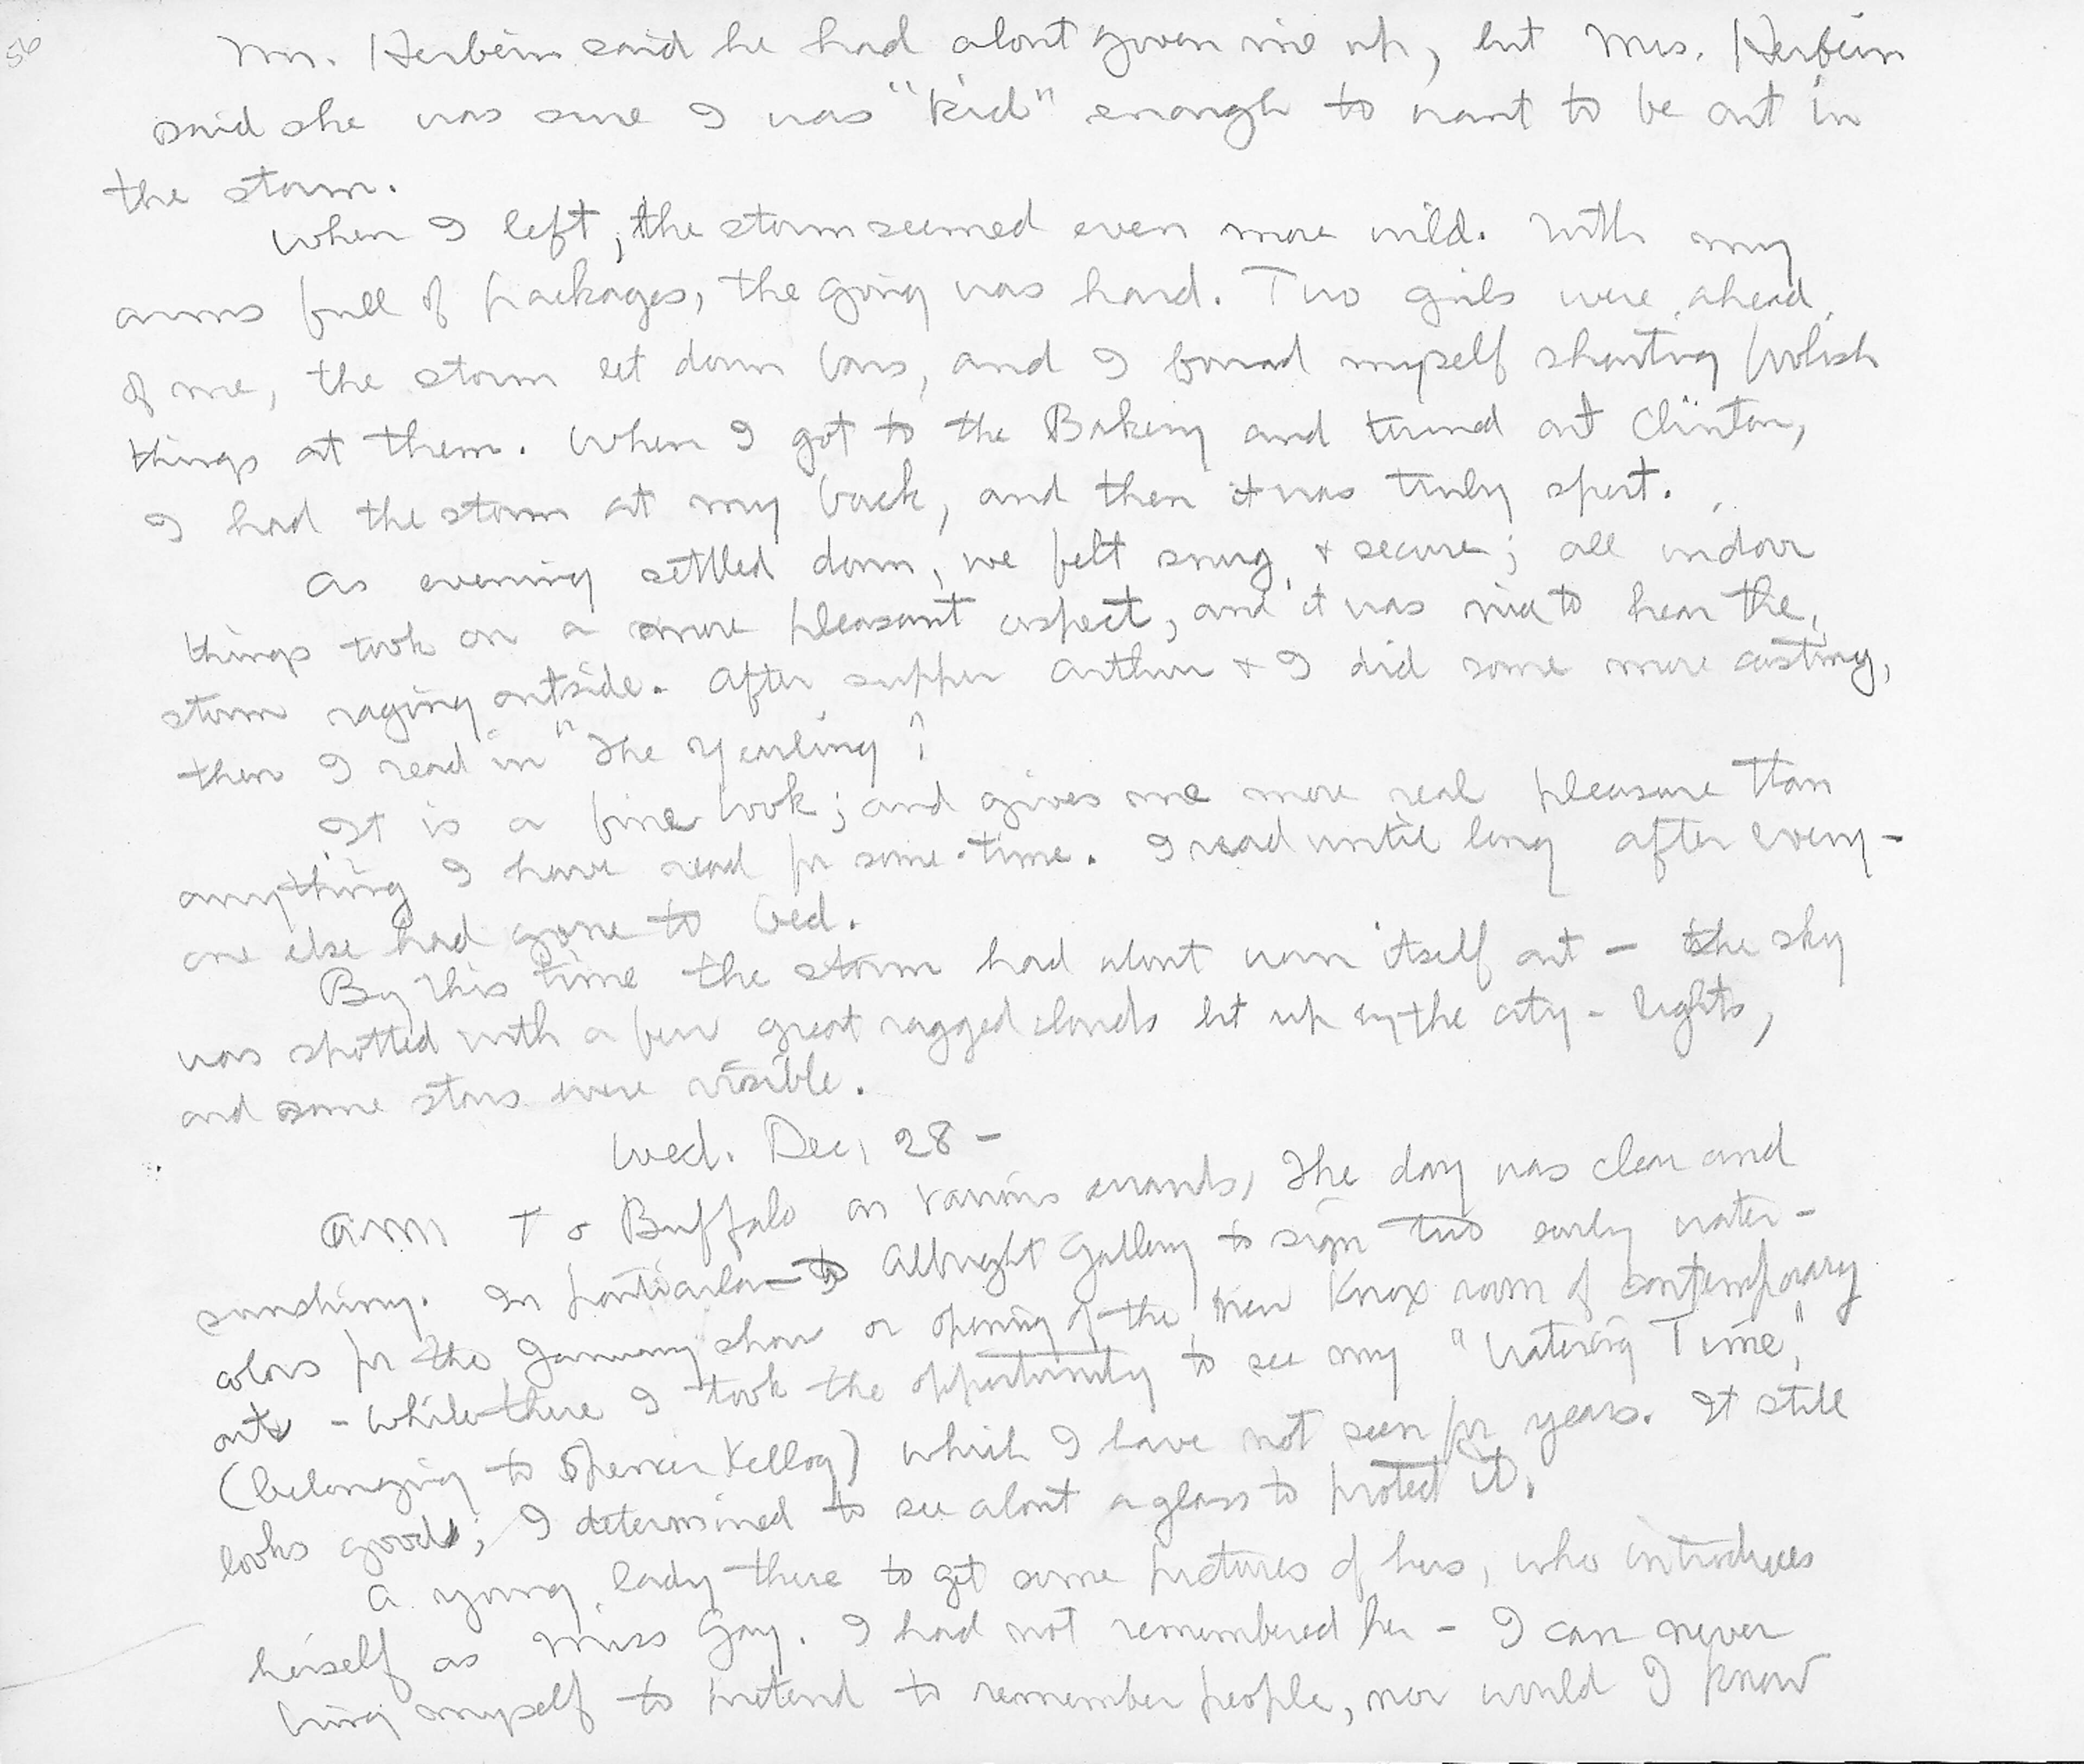 56
Mr. Herbein said he had about given me up, but Mrs. Herbein
said she was sure I was "kid" enough to want to be out in
the storm.
When I left, the storm seemed even more wild. With my
arms full of packages, the going was hard. Two girls were ahead
of me, the storm let down bars, and I found myself shouting foolish
things at them. When I got to the Bakery and turned out Clinton,
I had the storm at my back, and then it was truly sport.
As evening settled down, we felt snug & secure; all indoor
things took on a more pleasant aspect, and it was nice to hear the
storm raging outside. After supper Arthur & I did some more casting,
then I read in "The Yearling".
It is a fine book; and gives me more real pleasure than
anything I have read for some time. I read until long after every-
one else had gone to bed.
By this time the storm had about worn itself out – the sky
was spotted with a few great ragged clouds lit up by the city-lights,
and some stars were visible.
Wed. Dec. 28 –
AM To Buffalo on various errands, The day was clear and
sunshiny. In particular to Albright Gallery to sign two early water-
colors for the January show or opening of the new Knox room of contemporary
art – while there I took the opportunity to see my "Watering Time,"
(belonging to Spencer Kellog) which I have not seen for years. It still
looks good; I determined to see about a glass to protect it.
A young lady there to get some pictures of hers, who introduces
herself as Miss Gay. I had not remembered her – I can never
bring myself to pretend to remember people, nor would I know